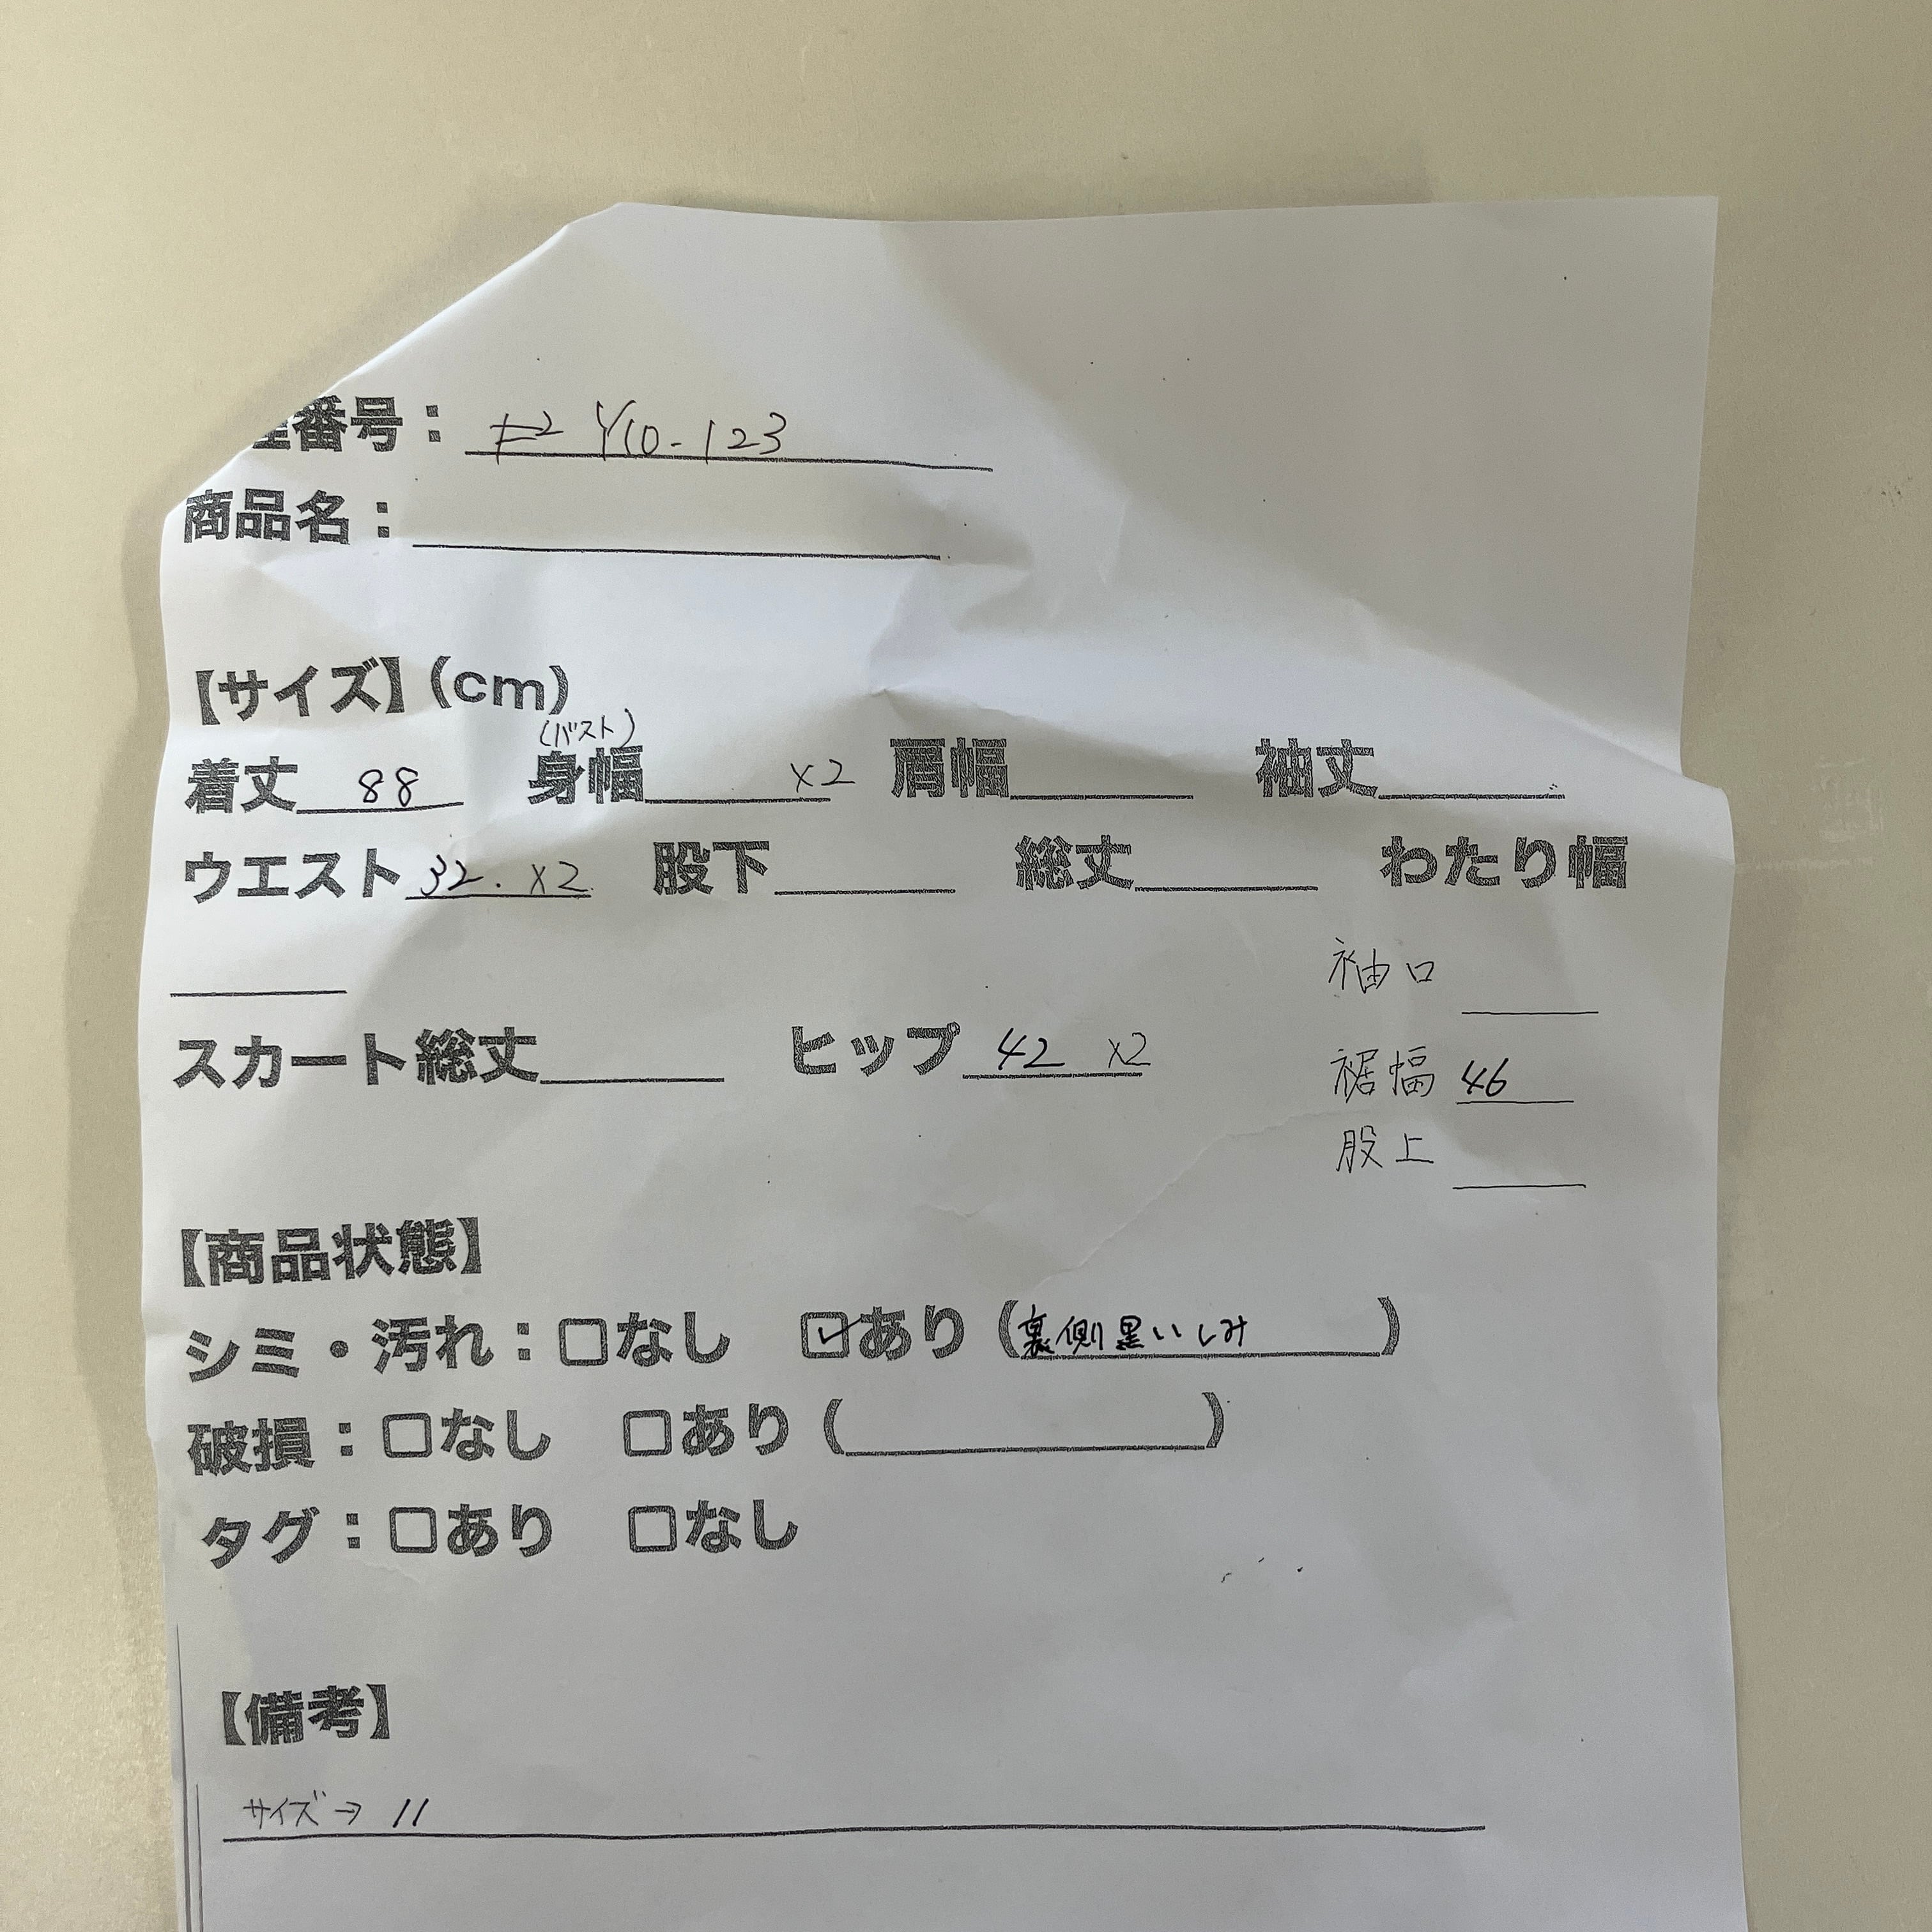 番号： Y10-123
商品名：
【サイズ】(cm)
(バスト)
着丈 88 身幅 ×2 肩幅 袖丈
ウエスト 32. ×2 股下 総丈 わたり幅
袖口
スカート総丈 ヒップ 42 ×2
裾幅 46
股上
【商品状態】
シミ・汚れ：□なし ☑あり（裏側黒いしみ）
破損：□なし □あり（ ）
タグ：□あり □なし
【備考】
サイズ→ 11